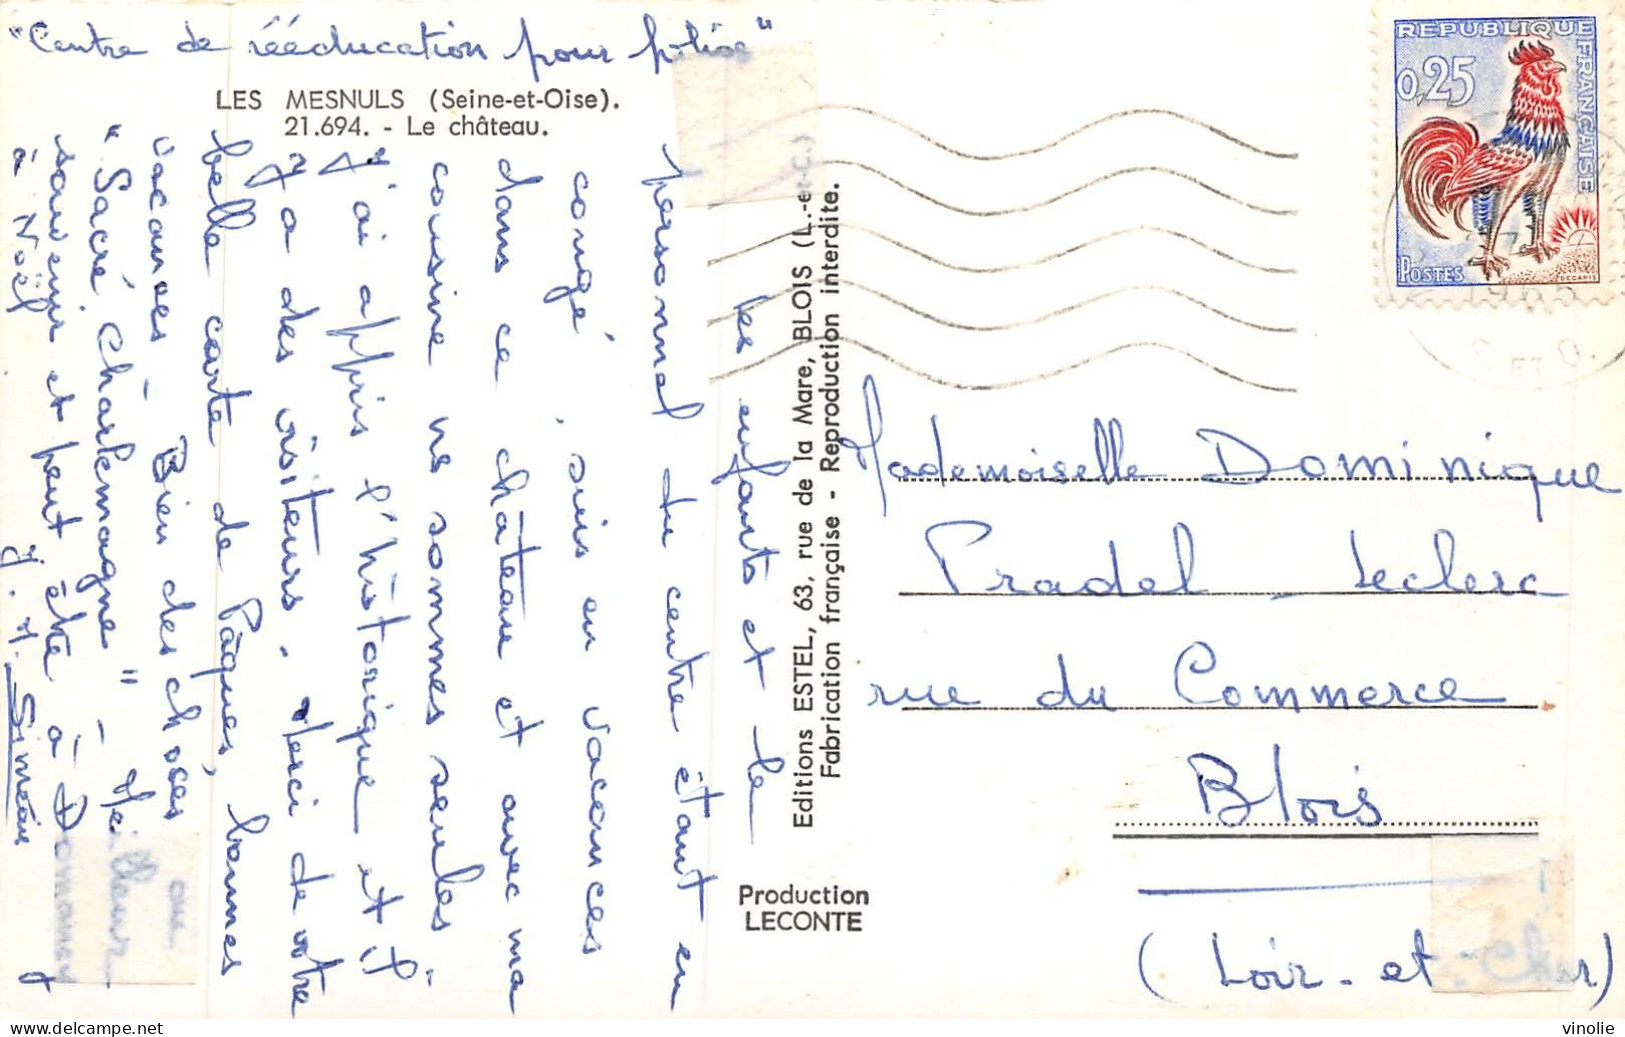 "Centre de rééducation pour polios"
LES MESNULS (Seine-et-Oise).
21.694. - Le château.
les enfants et le
personnel du centre étant en
congé, suis en vacances
dans ce château et avec ma
cousine ns sommes seules.
J'ai appris l'historique et il
y a des visiteurs. Merci de votre
belle carte de Pâques, bonnes
vacances - Bien des choses au
"Sacré Charlemagne" - Meilleur
souvenir et peut être à Domanes
à Noël J. M. Siméon
Editions ESTEL, 63, rue de la Mare, BLOIS (L.-et-C.)
Fabrication française - Reproduction interdite.
Production
LECONTE
REPUBLIQUE FRANÇAISE
0,25
POSTES
DECARIS
Mademoiselle Dominique
Pradel - Leclerc
rue du Commerce
Blois
(Loir-et-Cher)
vinolie